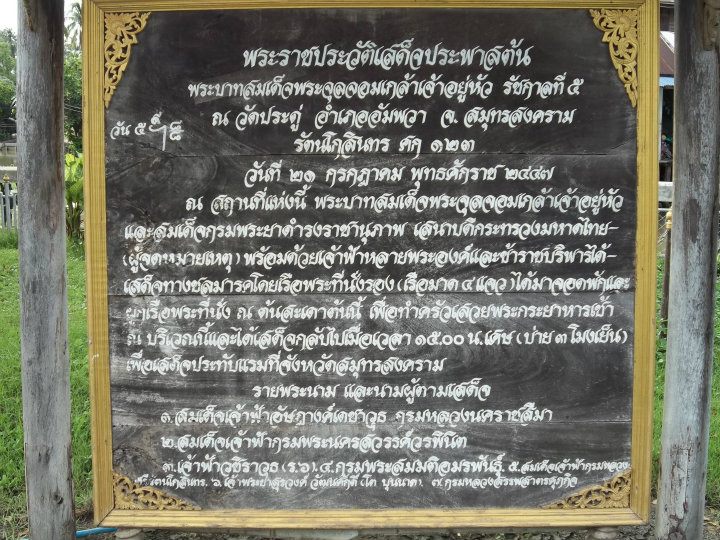 พระราชประวัติเสด็จประพาสต้น
พระบาทสมเด็จพระจุลจอมเกล้าเจ้าอยู่หัว รัชกาลที่ ๕
ณ วัดประดู่ อำเภออัมพวา จ. สมุทรสงคราม
วัน ๕
รัตนโกสินทร ศก ๑๒๓
วันที่ ๒๑ กรกฎาคม พุทธศักราช ๒๔๔๗
ณ สถานที่แห่งนี้ พระบาทสมเด็จพระจุลจอมเกล้าเจ้าอยู่หัว
และสมเด็จกรมพระยาดำรงราชานุภาพ เสนาบดีกระทรวงมหาดไทย-
(ผู้จดหมายเหตุ) พร้อมด้วยเจ้าฟ้าหลายพระองค์และข้าราชบริพารได้-
เสด็จทางชลมารคโดยเรือพระที่นั่งรอง (เรือมาด ๔ แจว) ได้มาจอดพักและ
ผูกเรือพระที่นั่ง ณ ต้นสะเดาต้นนี้ เพื่อทำครัวเสวยพระกระยาหารเช้า
ณ บริเวณนี้และได้เสด็จกลับไปเมื่อเวลา ๑๕.๐๐ น.เศษ (บ่าย ๓ โมงเย็น)
เพื่อเสด็จประทับแรมที่จังหวัดสมุทรสงคราม
รายพระนาม และนามผู้ตามเสด็จ
๑. สมเด็จเจ้าฟ้าอัษฎางค์เดชาวุธ กรมหลวงนคราชสีมา
๒. สมเด็จเจ้าฟ้ากรมพระนครสวรรค์วรพินิต
๓. เจ้าฟ้าวชิราวุธ (ร.๖) ๔. กรมพระสมมติอมรพันธุ์ ๕. สมเด็จเจ้าฟ้ากรมหลวง
๖. เจ้าพระยาสุรวงศ์ วัฒนศักดิ์ (โต บุนนาค) ๗. กรมหลวงสรรพสาตรศุภกิจ